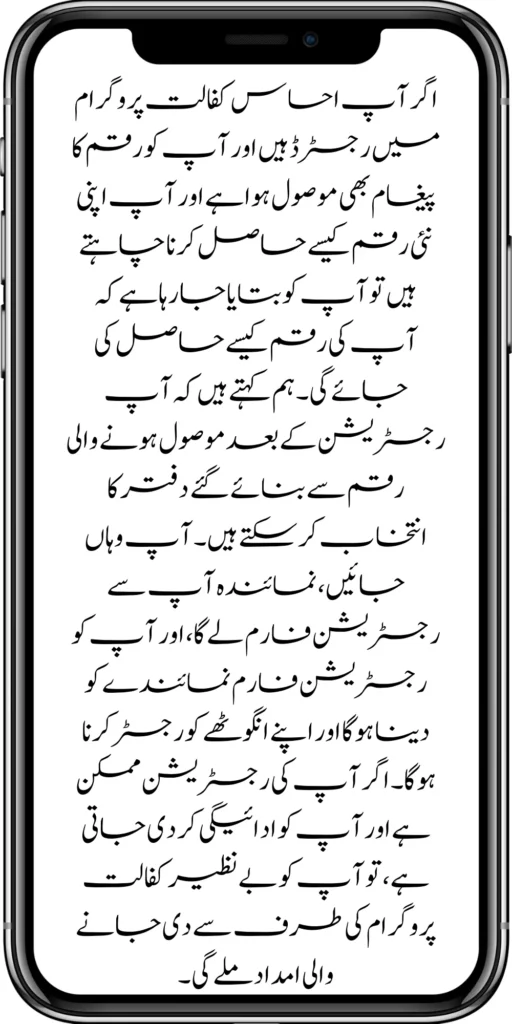 اگر آپ احساس کفالت پروگرام
میں رجسٹرڈ ہیں اور آپ کو رقم کا
پیغام بھی موصول ہوا ہے اور آپ اپنی
نئی رقم کیسے حاصل کرنا چاہتے
ہیں تو آپ کو بتایا جا رہا ہے کہ
آپ کی رقم کیسے حاصل کی
جائے گی۔ ہم کہتے ہیں کہ آپ
رجسٹریشن کے بعد موصول ہونے والی
رقم سے بنائے گئے دفتر کا
انتخاب کر سکتے ہیں۔ آپ وہاں
جائیں، نمائندہ آپ سے
رجسٹریشن فارم لے گا، اور آپ کو
رجسٹریشن فارم نمائندے کو
دینا ہوگا اور اپنے انگوٹھے کو رجسٹر کرنا
ہوگا۔ اگر آپ کی رجسٹریشن ممکن
ہے اور آپ کو ادائیگی کر دی جاتی
ہے، تو آپ کو بے نظیر کفالت
پروگرام کی طرف سے دی جانے
والی امداد ملے گی۔